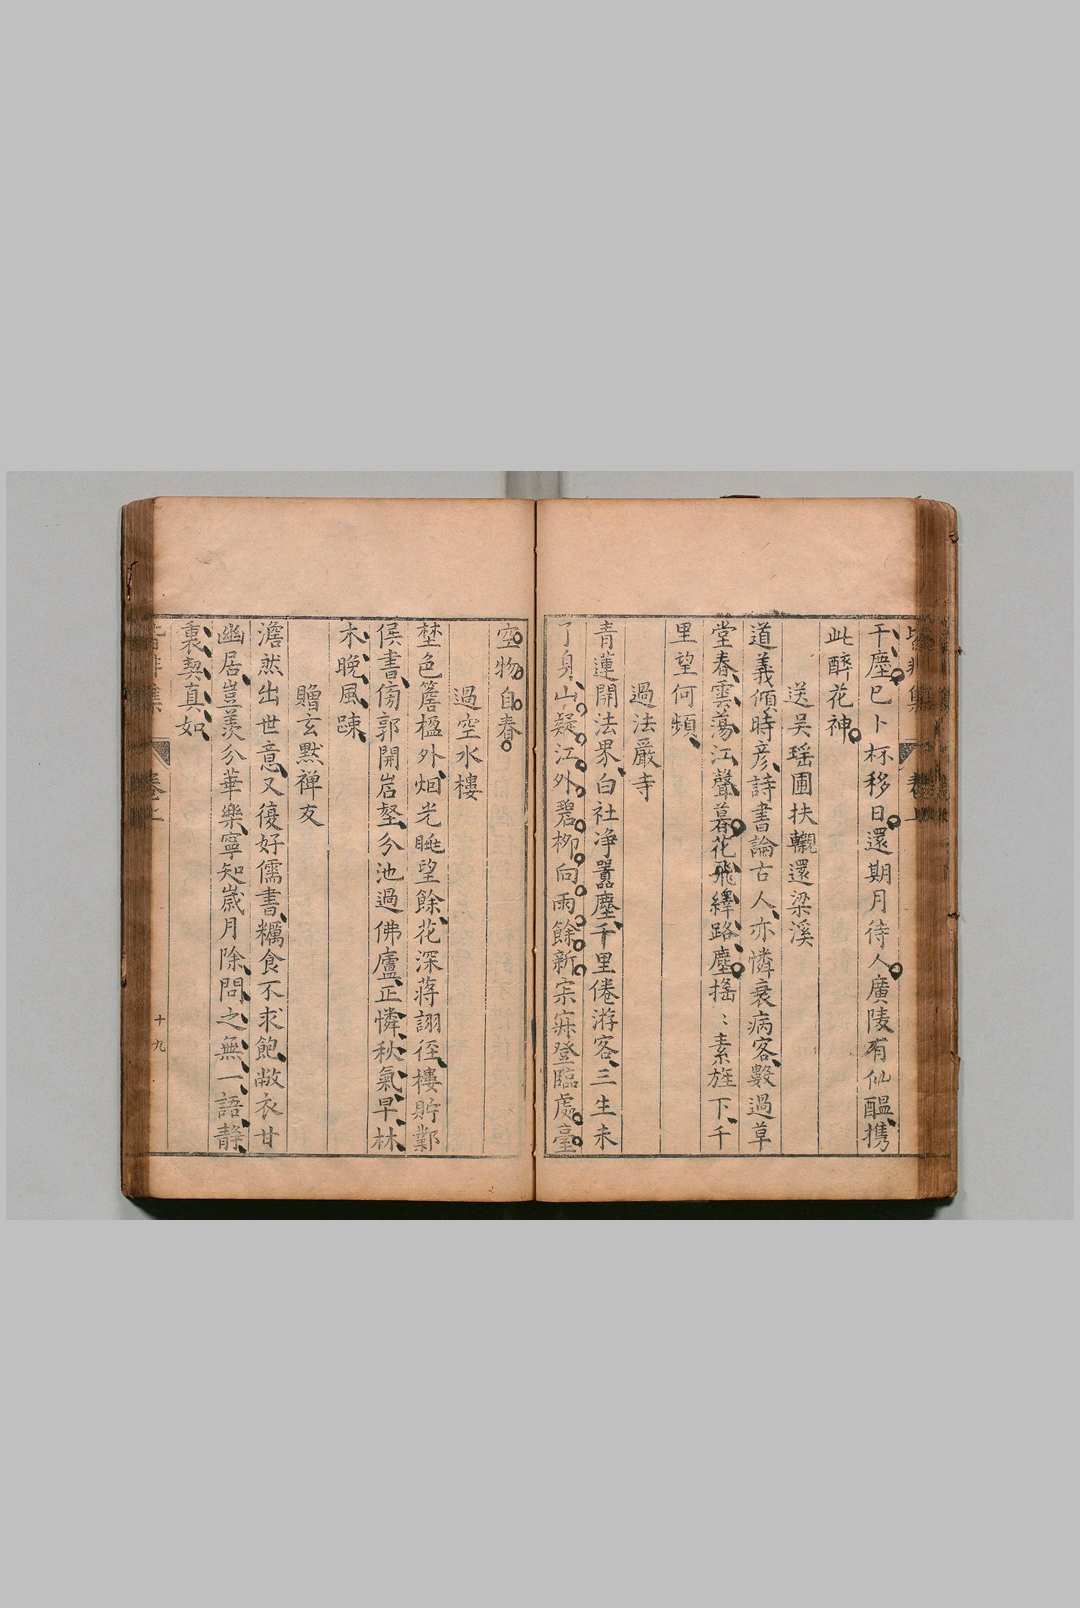 千塵已卜杯移日還期月待人廣陵有仙醞携
此醉花神
送吳瑶圃扶櫬還梁溪
道義傾時彦詩書論古人亦憐衰病客數過草
堂春雲蕩江聲暮花飛繹路塵搖〻素旌下千
里望何頻
過法嚴寺
青蓮開法界白社净囂塵千里倦游客三生未
了身山凝江外碧柳向雨餘新宗寂登臨處臺
空物自春
過空水樓
埜色簷楹外烟光眺望餘花深蒋詡徑樓貯鄴
侯書傍郭開岩壑分池過佛廬正憐秋氣早林
木晚風踈
贈玄黙禅友
澹然出世意又復好儒書糲食不求飽敝衣甘
幽居豈羡分華樂寧知歲月除問之無一語静
裏契真如
卷上
十九